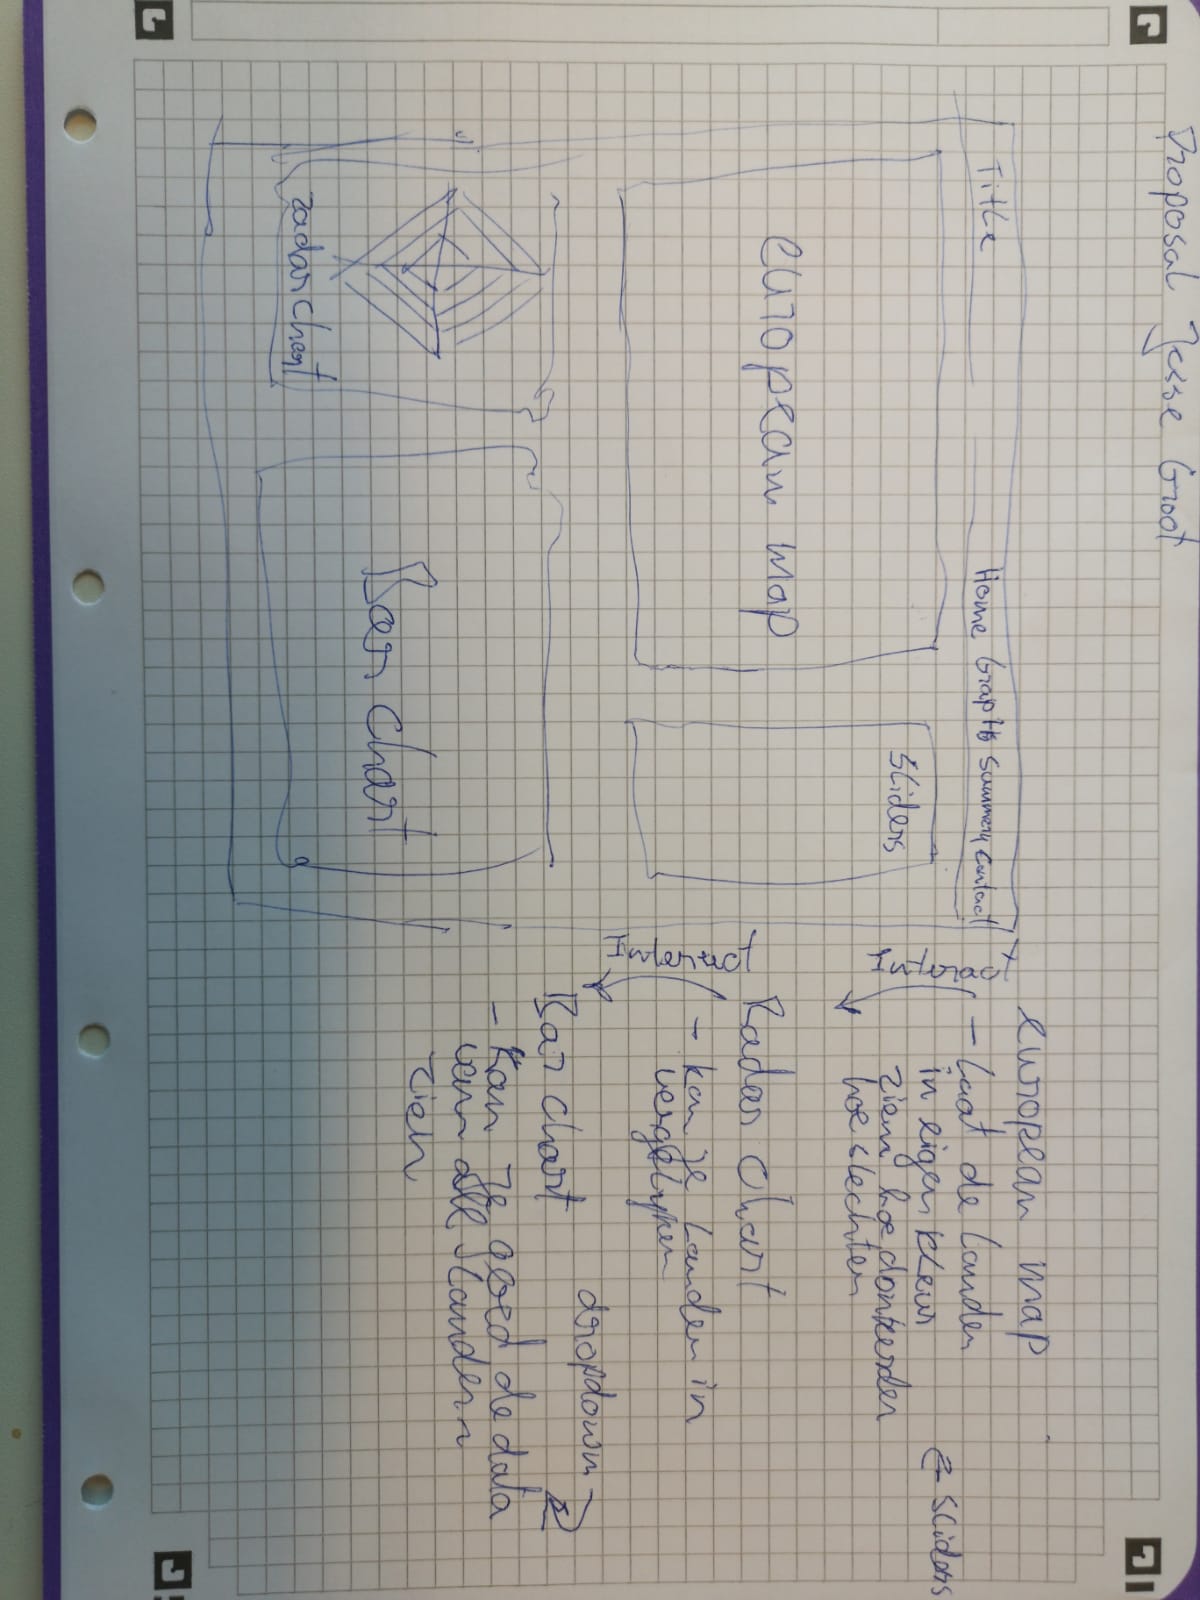 Proposal Jesse Groot
Title
Home Graphs summery contact
european map
Sliders
radar chart
Bar chart
european map
- laat de landen
in eigen kleur
zien hoe donkerder
hoe slechter
← sliders
Interact
Radar chart
- kan je landen in
vergelijken
Interact
Bar chart
dropdown
- Kan je goed de data
van alle landen
zien